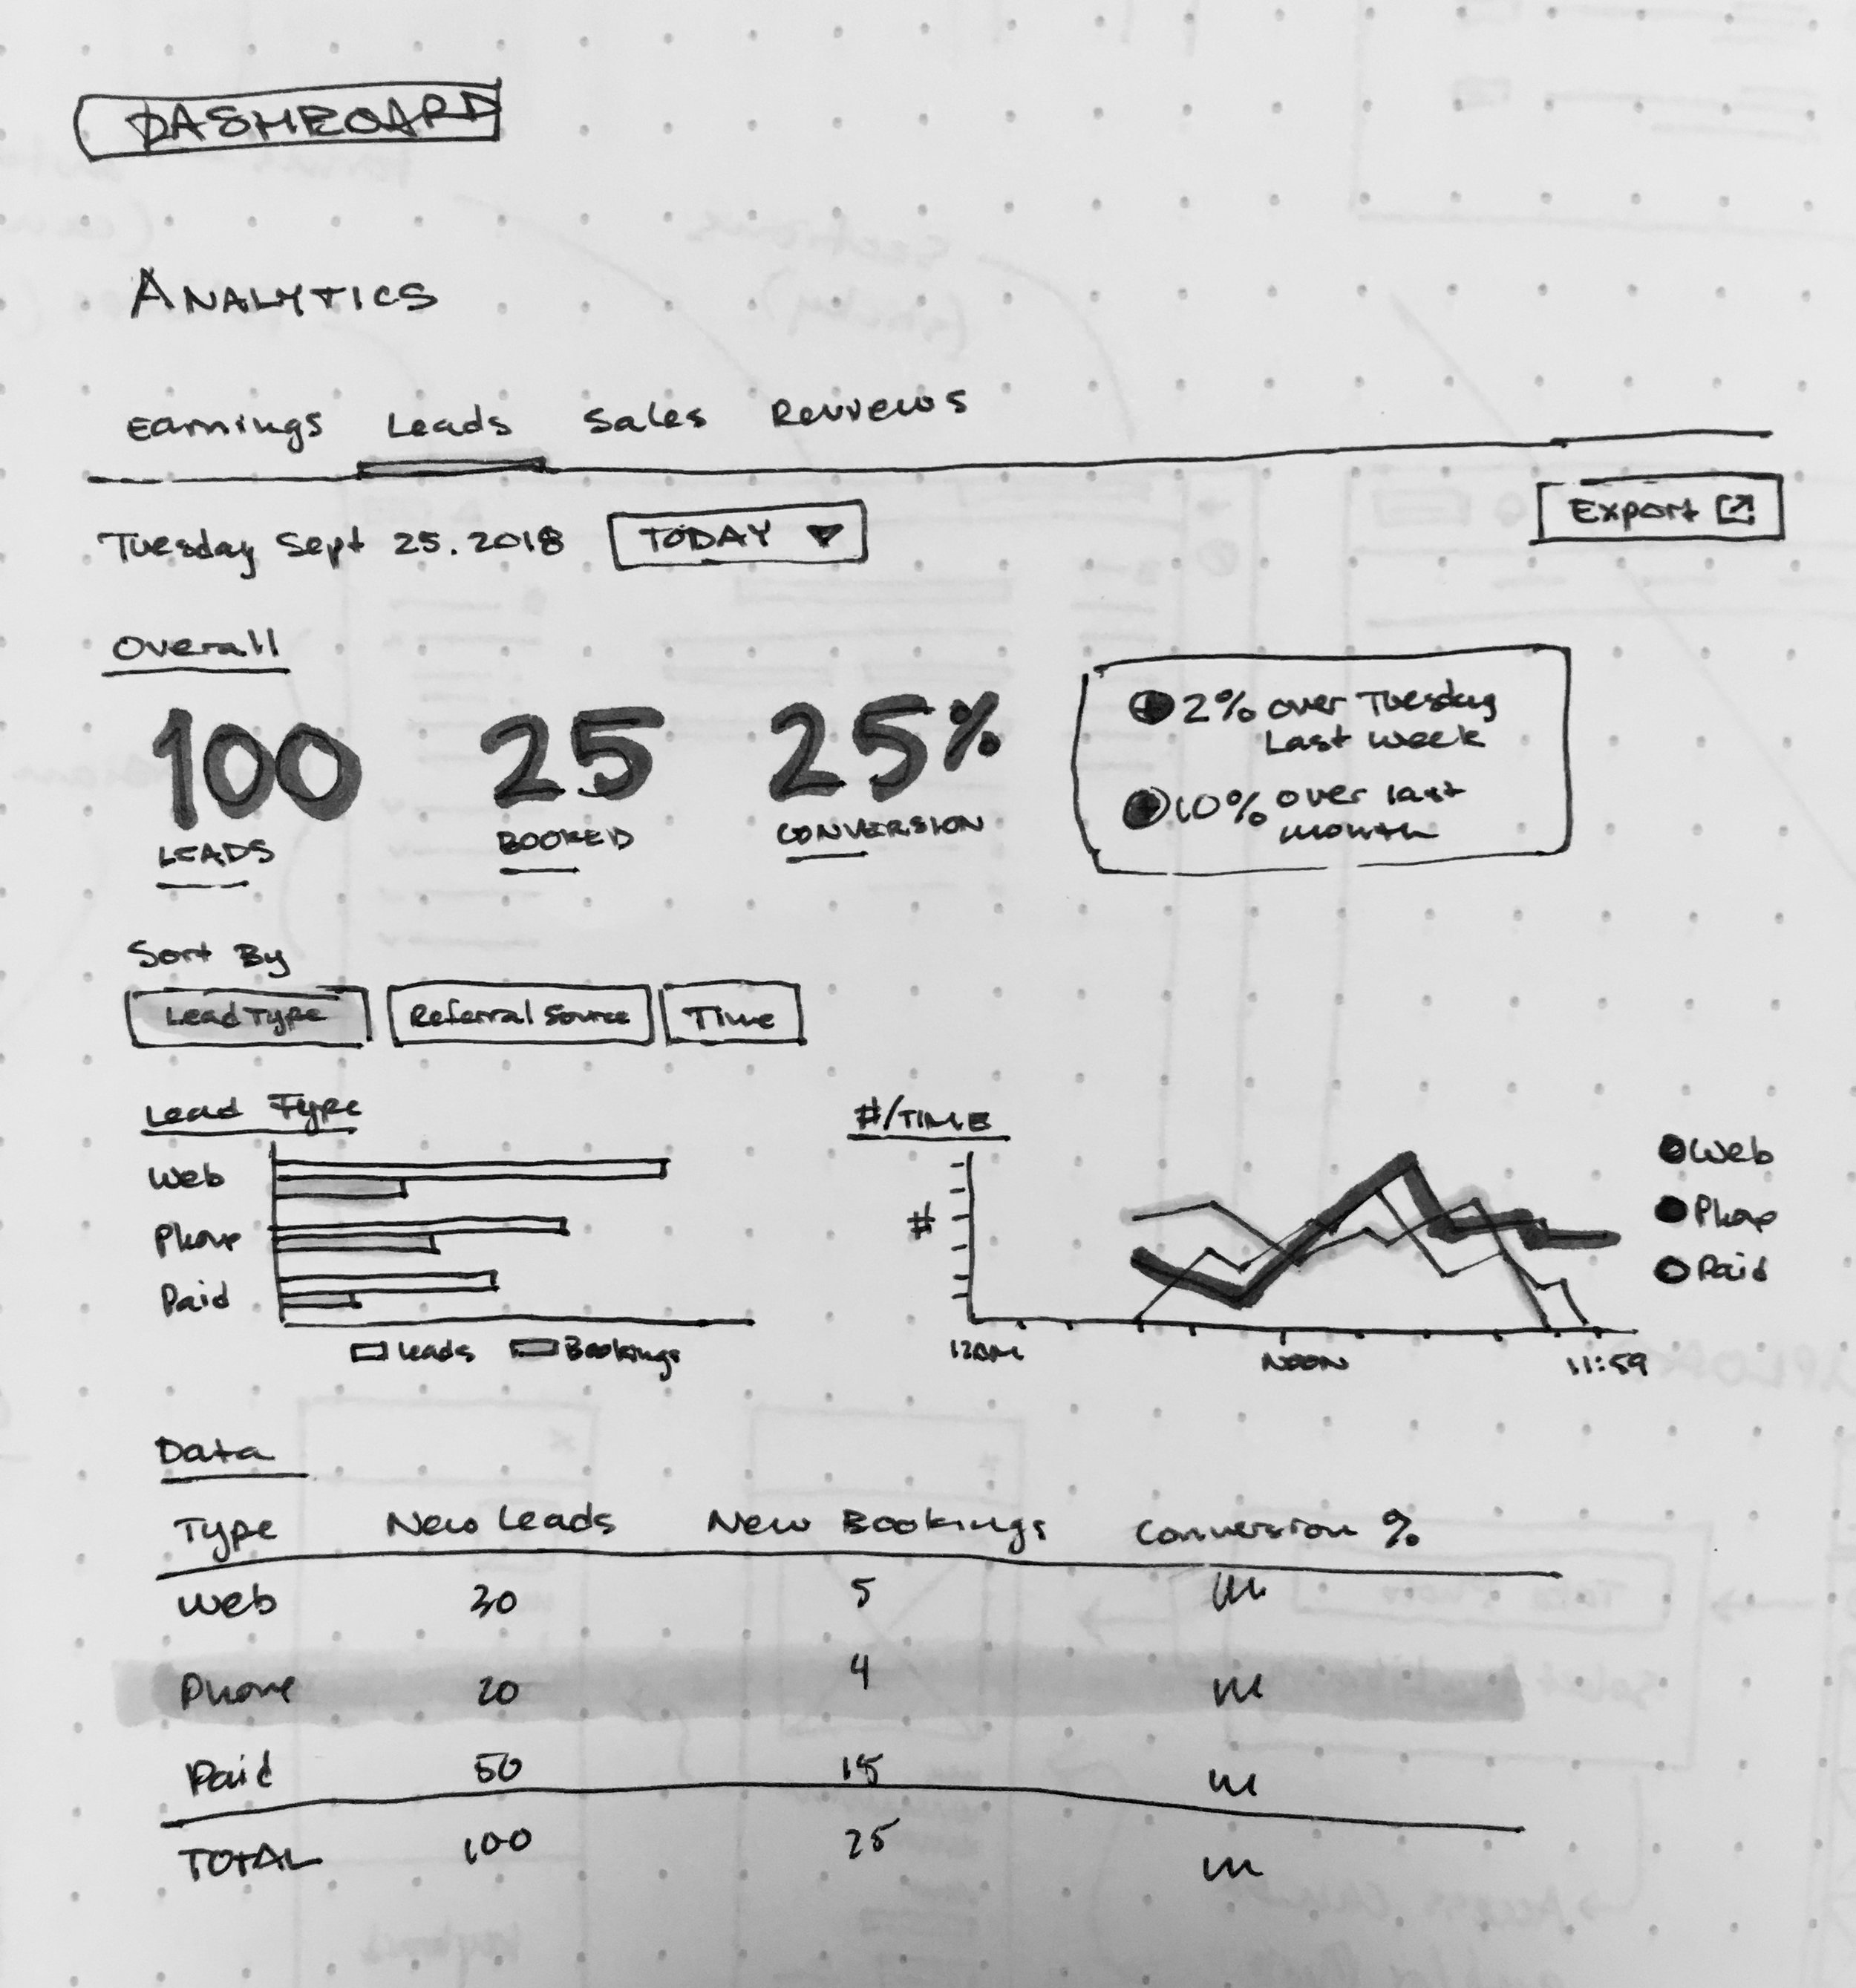 DASHBOARD
ANALYTICS
Earnings Leads Sales Reviews
Tuesday Sept 25.2018 TODAY Export
Overall
100 25 25%
LEADS BOOKED CONVERSION
2% over Tuesday
Last week
10% over last
month
Sort By
Lead Type Referral Source Time
Lead Type
Web
Phone
Paid
Leads Bookings
#/TIME
#
12AM NOON 11:59
Web
Phone
Paid
Data
Type New Leads New Bookings Conversion %
Web 30 5
Phone 20 4
Paid 50 15
TOTAL 100 25